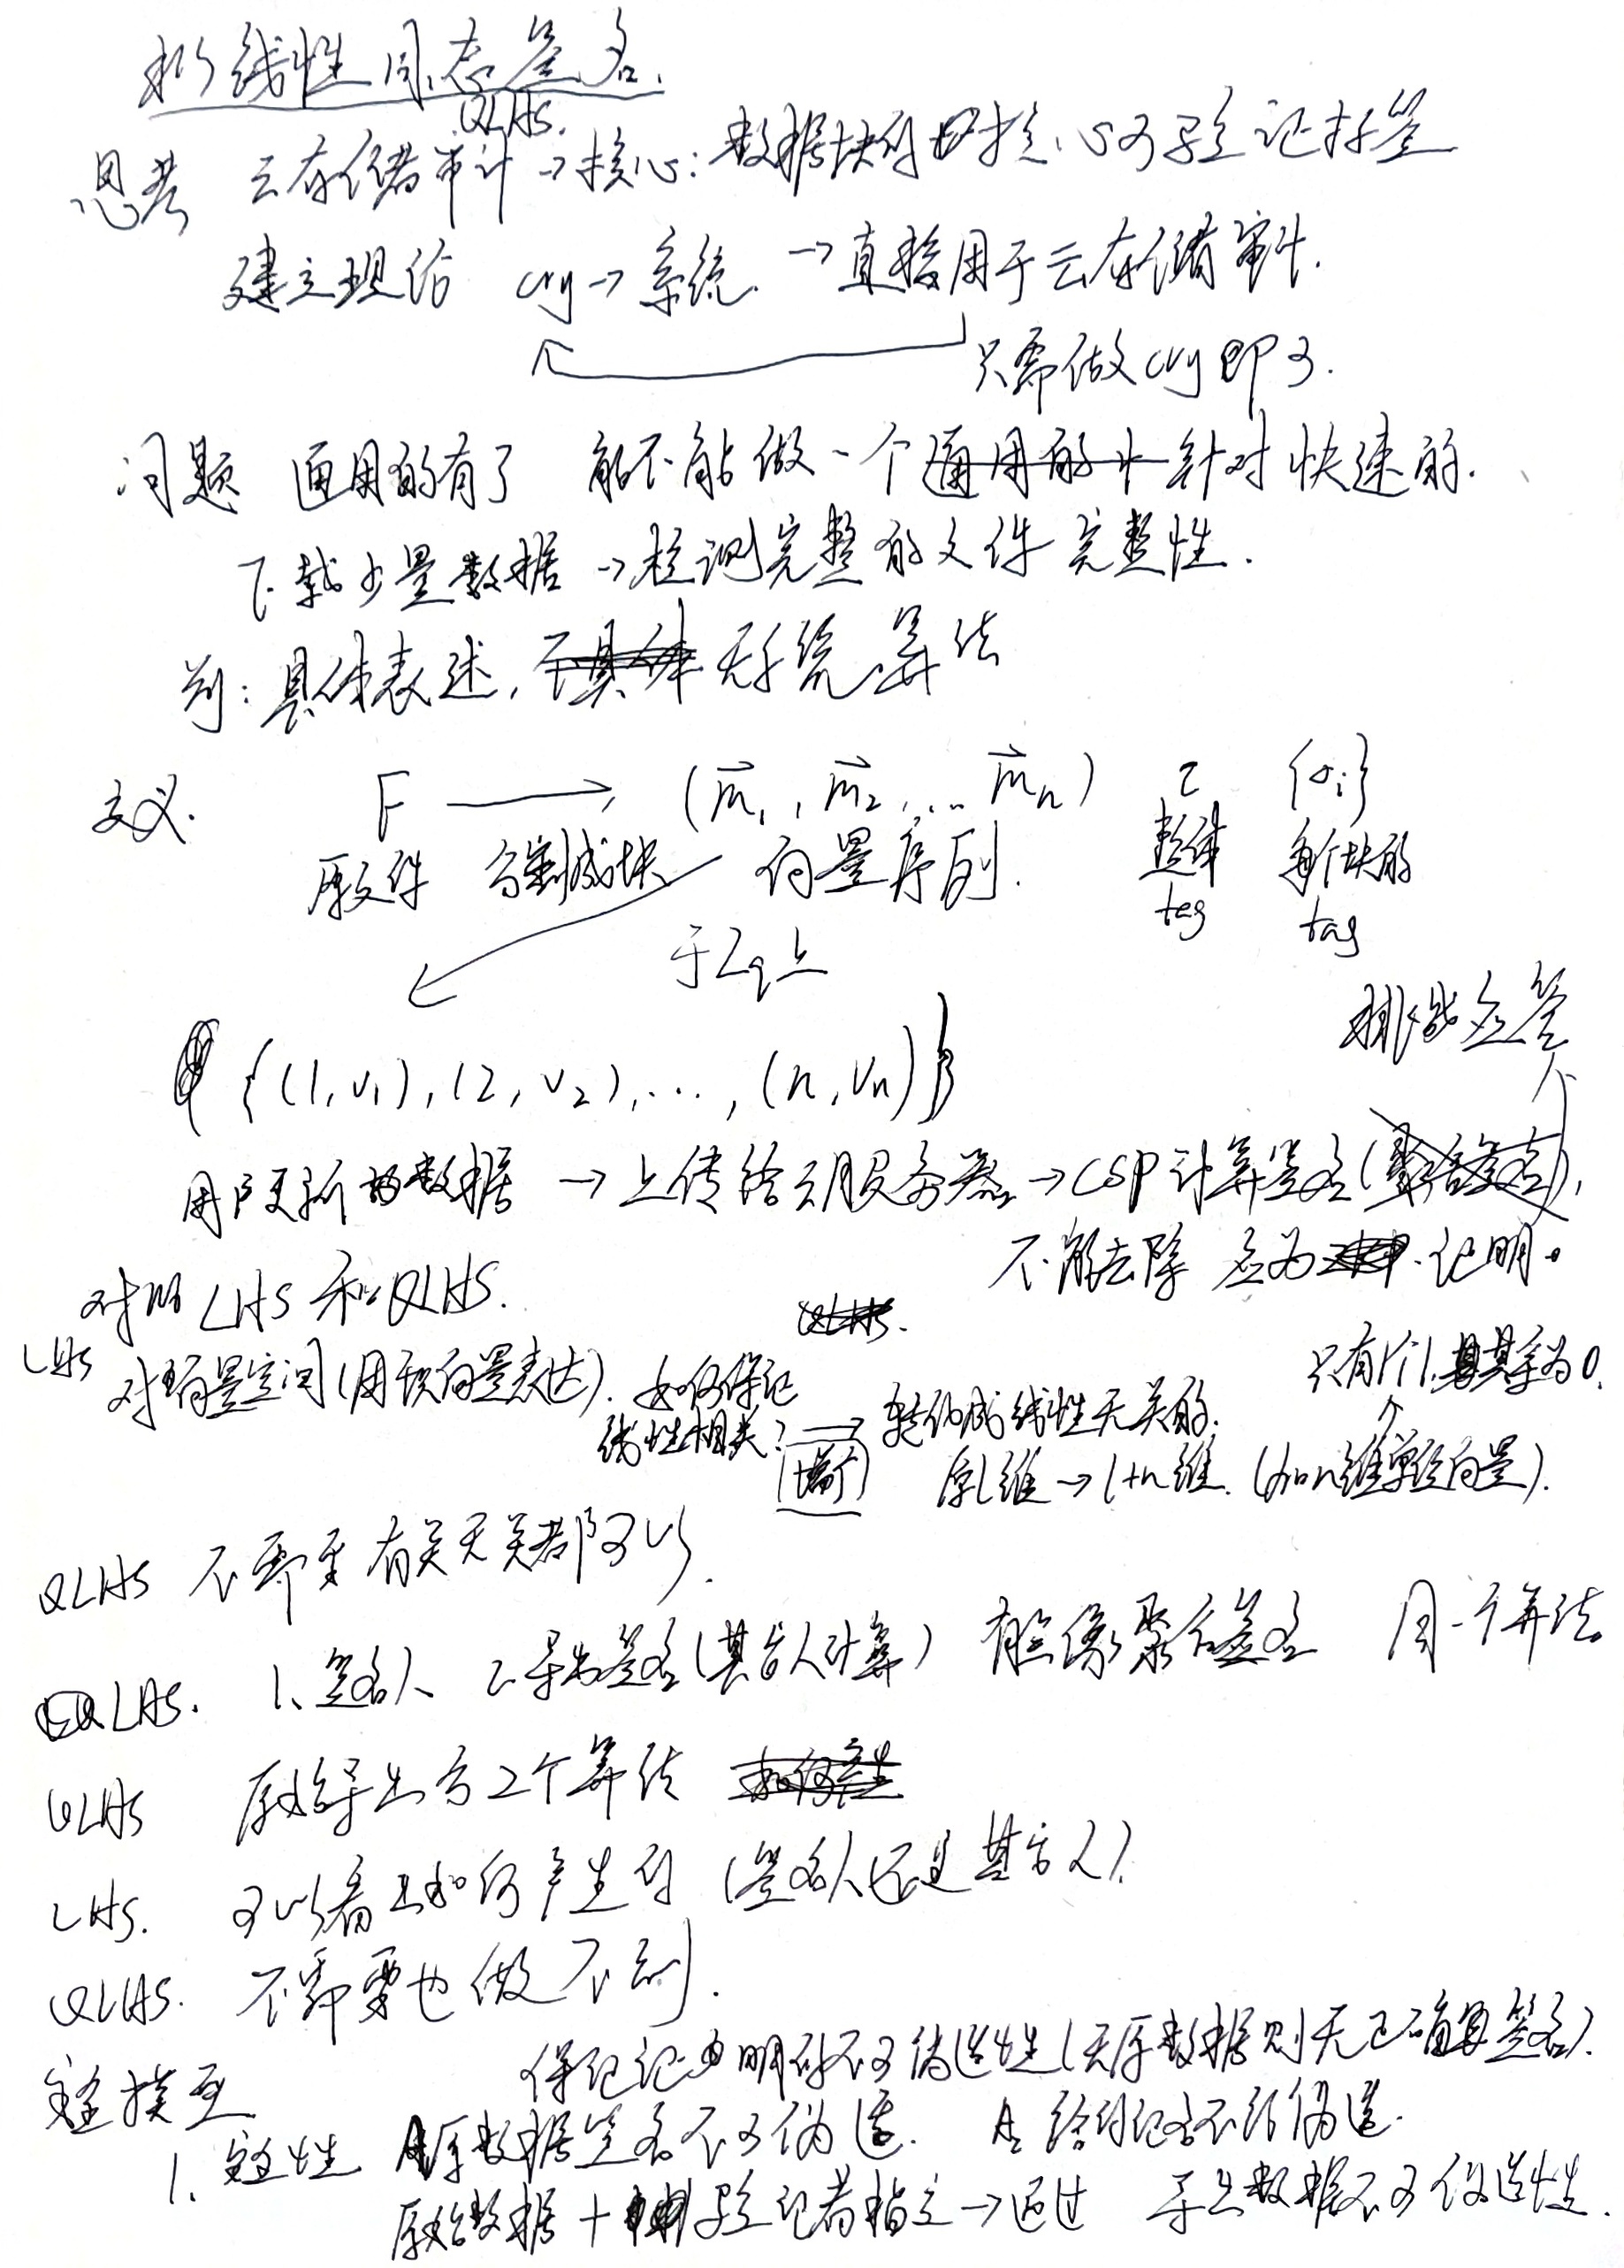 拟线性同态签名.
QLHS.
思考 云存储审计→核心: 数据块的 可验证标签
建立理论 cry→系统. →直接用于云存储审计.
只需做cry即可.
问题 通用的有了 能不能做一个通用的 针对快速的.
下载少量数据→检测完整的文件完整性.
具体表述, 不具体 无系统算法
定义. F → (m⃗₁, m⃗₂, ... m⃗ₙ) τ {σᵢ}
原文件 分割成块 向量序列. 整体 每个块的
tag tag
于Zq上
挑战应答
{(1,v₁),(2,v₂),...,(n,vₙ)}
用户更新的数据→上传给云服务器→CSP计算签名(聚合签名),
不能去除 应为 证明。
对比LHS和QLHS.
QLHS.
LHS 对向量空间(用 向量表达). 如何保证
线性相关? → 转化成线性无关的. 只有1个1,其余为0.
(增广) 原l维→l+n维. (加n维单位向量).
QLHS 不需要 有关无关都可以.
QLHS. 1、签名人 2、导出签名(其它人计算) 有点像聚合签名 同一个算法
QLHS 原始导出分2个算法 如何产生
LHS. 可以看出如何产生的 (签名人还是其它人).
QLHS. 不需要也做不到.
安全模型 保证证明的不可伪造性(无原数据则无正确签名).
1、安全性 原数据签名不可伪造. 不能伪造.
原始数据+ 验证者指定→通过 导出数据不可伪造性.